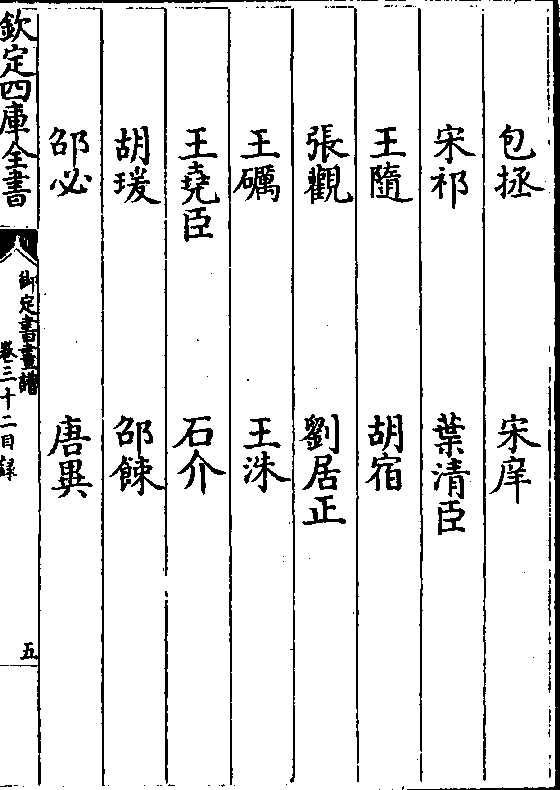 包拯　宋庠
宋祁　葉清臣
王隨　胡宿
張觀　劉居正
王礪　王洙
王堯臣　石介
胡瑗　邵餗
邵必　唐異
欽定四庫全書
御定書畫譜
卷三十二目録
五